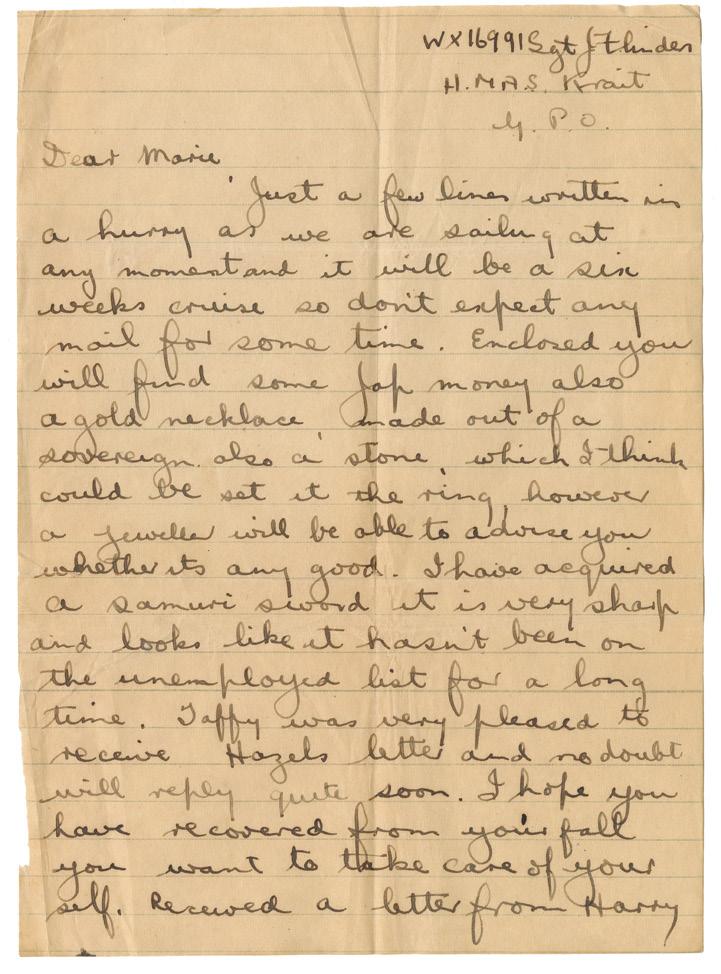 WX16991 Sgt J Hinder
H.M.A.S. Krait
G. P. O.
Dear Marie
Just a few lines written in
a hurry as we are sailing at
any moment and it will be a six
weeks cruise so don't expect any
mail for some time. Enclosed you
will find some Jap money also
a gold necklace made out of a
sovereign also a stone, which I think
could be set it the ring, however
a jeweller will be able to advise you
whether its any good. I have acquired
a samuri sword it is very sharp
and looks like it hasn't been on
the unemployed list for a long
time. Taffy was very pleased to
receive Hazels letter and no doubt
will reply quite soon. I hope you
have recovered from your fall
you want to take care of your
self. Received a letter from Harry